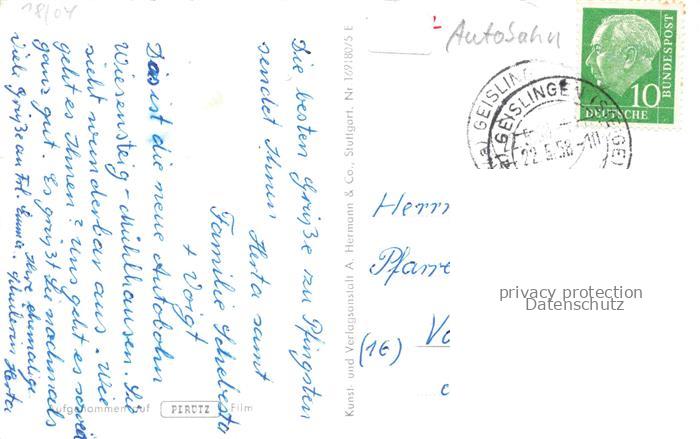 18/04
Die besten Grüße zu Pfingsten
sendet Ihnen
Herta samt
Familie
+ Voigt
Das ist die neue Autobahn
Wiesensteig - Mühlhausen. Sie
sieht wunderbar aus. Wie
geht es Ihnen? Uns geht es soweit
ganz gut. Es grüßt Sie nochmals
Ihre ehemalige
Viele Grüße an Frl. Emma. Schülerin Herta
Aufgenommen auf PERUTZ Film
Kunst- und Verlagsanstalt A. Hermann & Co., Stuttgart. Nr 169180/5 E
Autobahn
GEISLINGEN (STEIGE)
22.5.58-
10
DEUTSCHE
BUNDESPOST
Herrn
Pfarre
(16) Va
privacy protection
Datenschutz